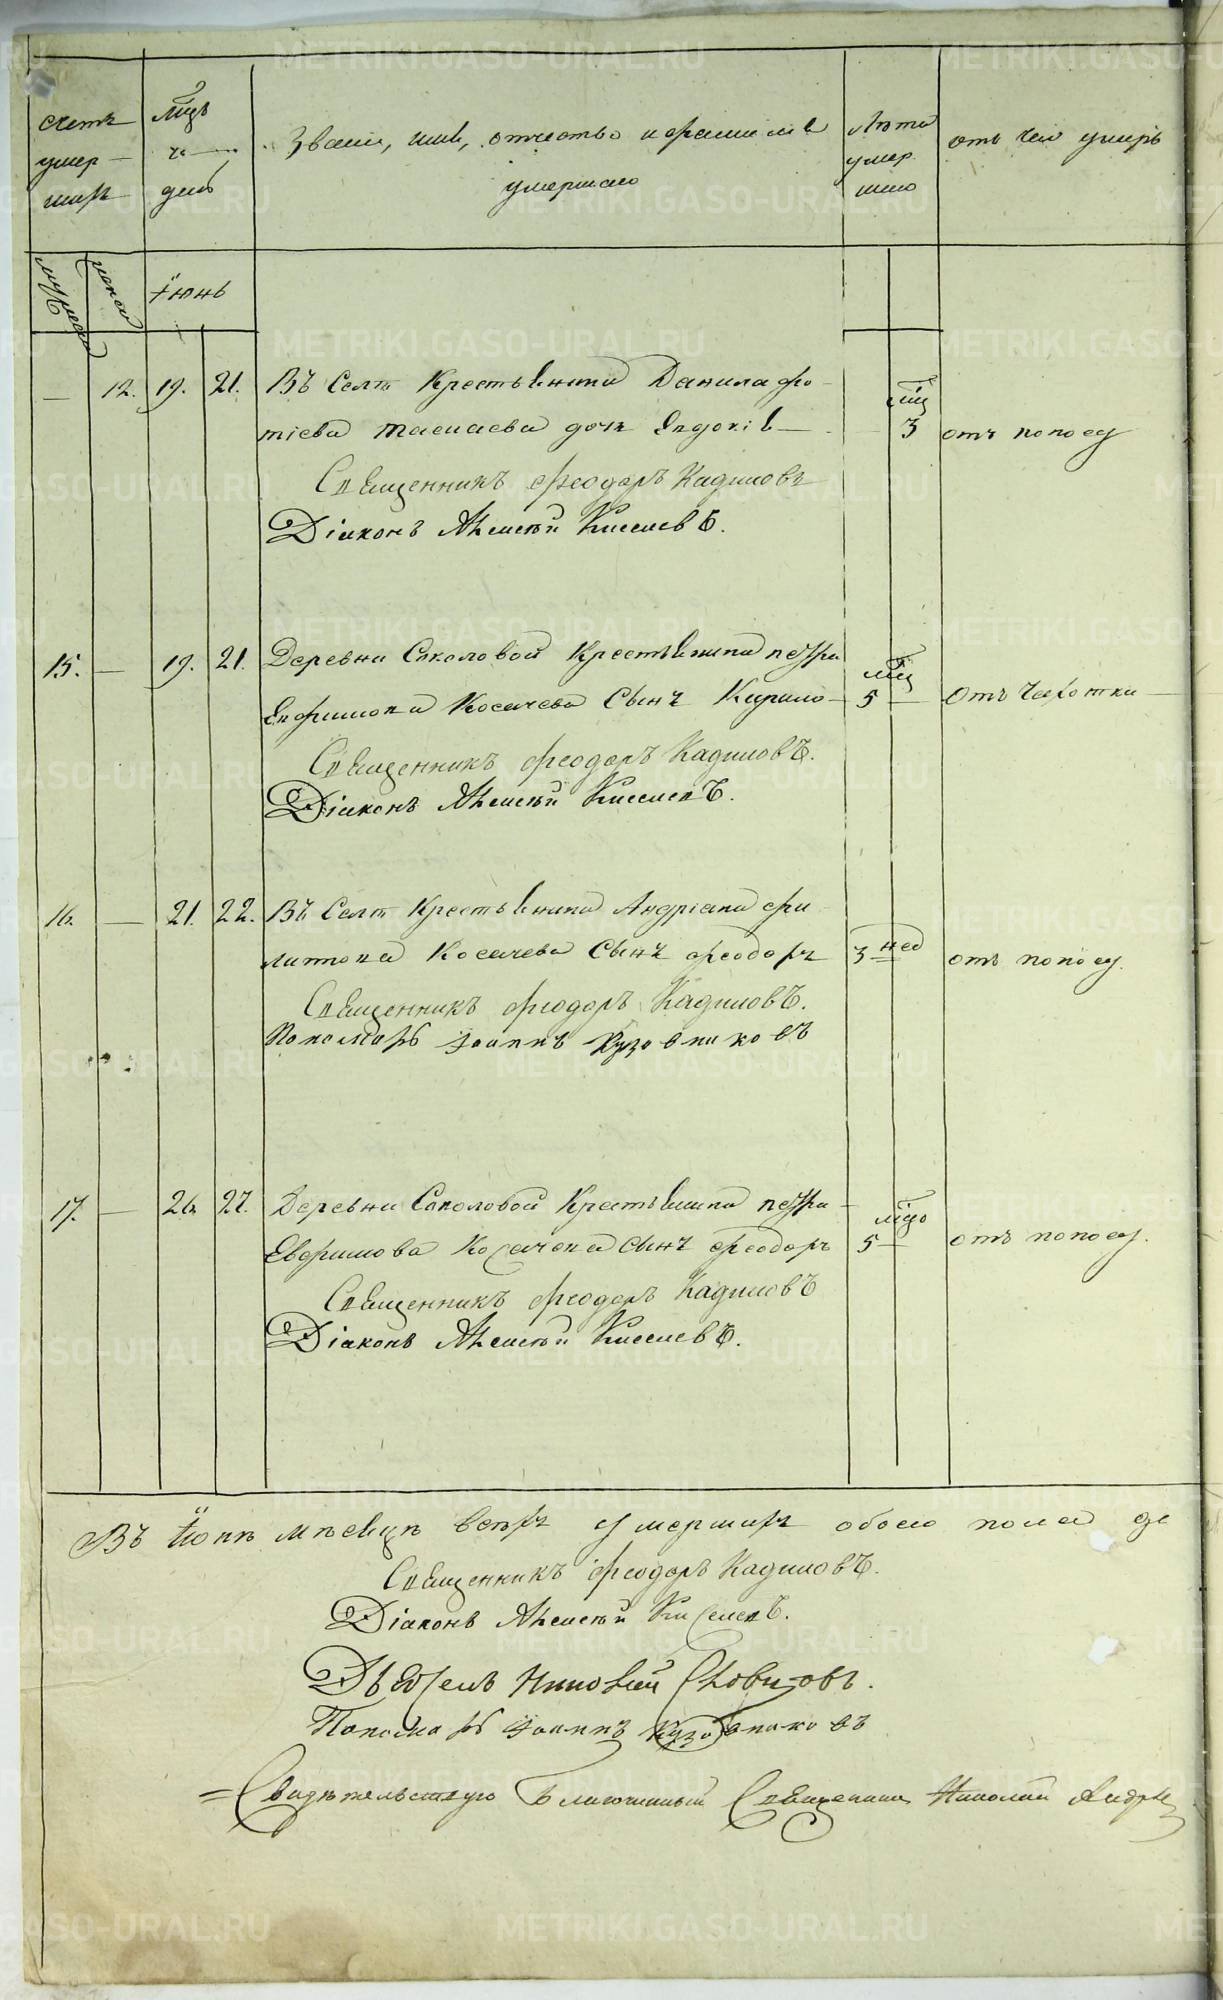 счетъ умер-шихъ
мцъ и день
Званіе, имя, отчество и фамилія умершаго
Лѣта умершаго
отъ чего умеръ
мужеска
женска
Іюнь
— 12. 19. 21. Въ Селѣ Крестьянина Данила Фо-
тіева дочь Евдокія — мцъ 3 отъ поносу
Священникъ Феодоръ Кадиловъ
Діаконъ Алексѣй Киселевъ.
15. — 19. 21. Деревни Соколовой Крестьянина Петра
Евфимова Косачева Сынъ Кирило — мцъ 5 — отъ Чахотки —
Священникъ Феодоръ Кадиловъ.
Діаконъ Алексѣй Киселевъ.
16. — 21. 22. Въ Селѣ Крестьянина Андріана Фи-
липпова Косачева Сынъ Феодоръ 3 нед отъ поносу.
Священникъ Феодоръ Кадиловъ.
Пономарь Іоаннъ Кузовниковъ
17. — 26. 27. Деревни Соколовой Крестьянина Петра
Евфимова Косачева сынъ Феодоръ мцо 5 — отъ поносу.
Священникъ Феодоръ Кадиловъ
Діаконъ Алексѣй Киселевъ.
Въ Іюнѣ мѣсяцѣ всѣхъ умершихъ обоего пола
Священникъ Феодоръ Кадиловъ.
Діаконъ Алексѣй Киселевъ.
Николай
Пономарь Іоаннъ Кузовниковъ
= Свидѣтельствую Благочинный Священникъ Николай
METRIKI.GASO-URAL.RU